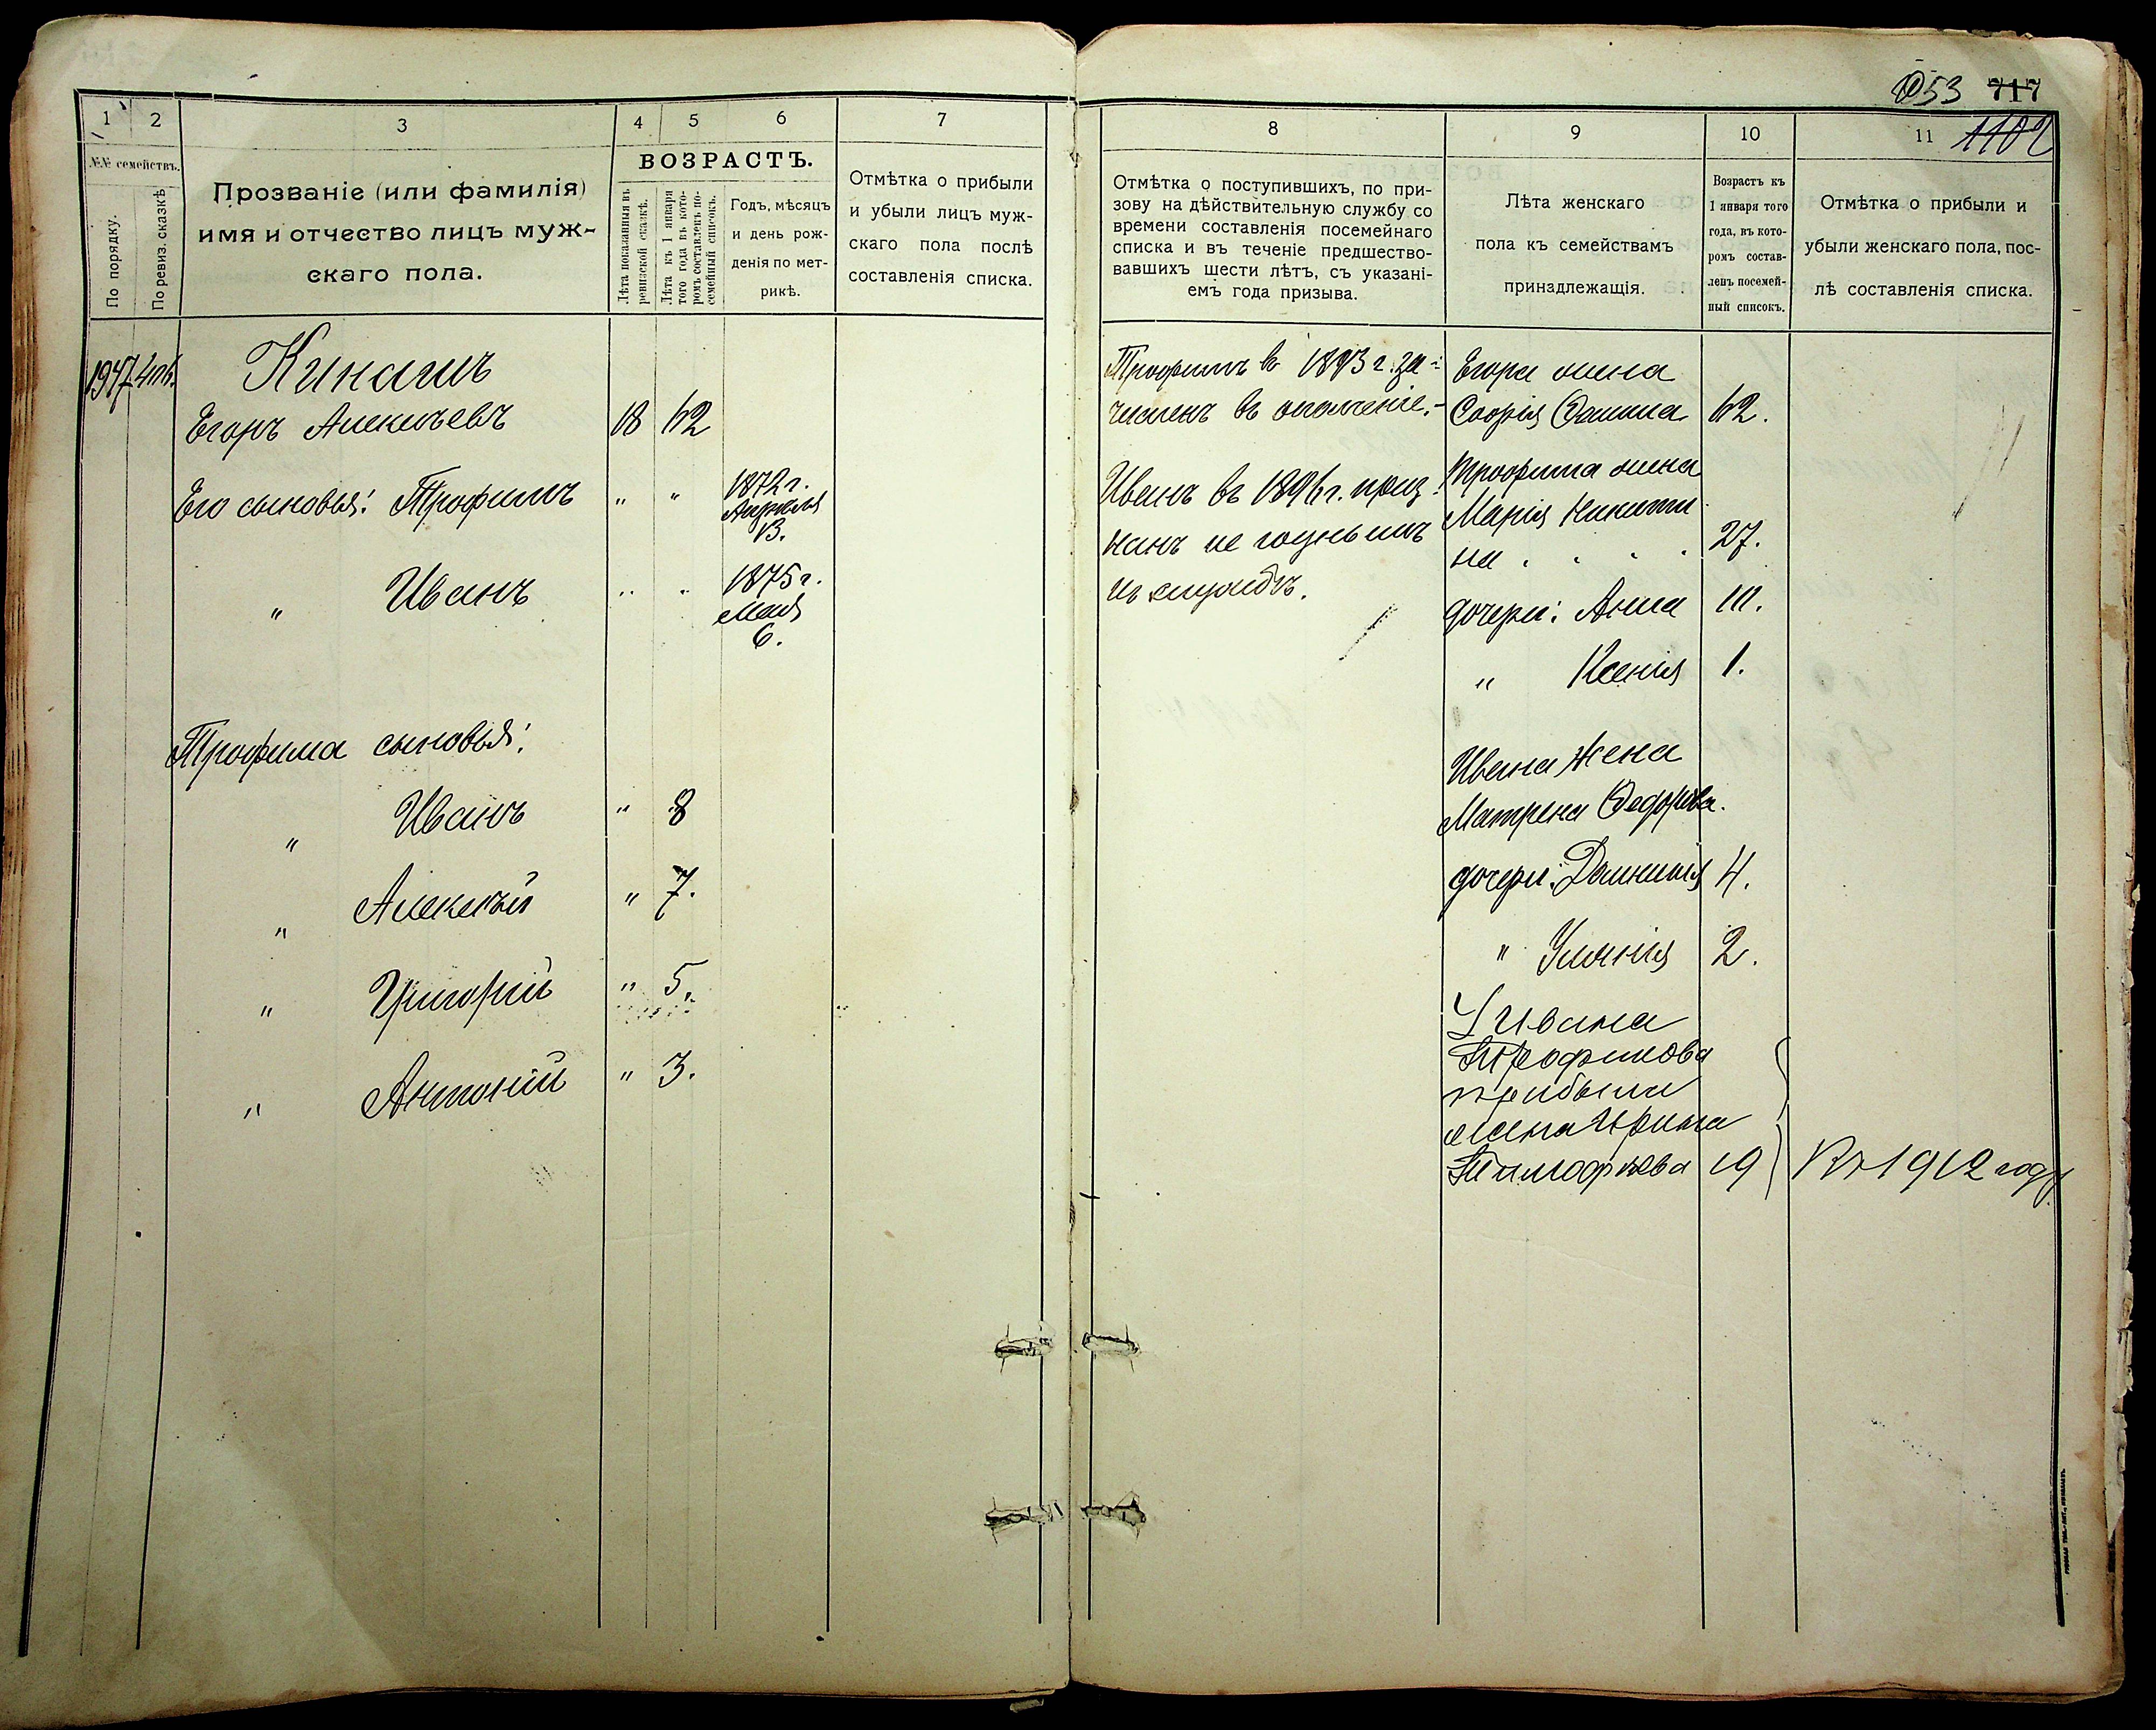 53 717
1 2 3 4 5 6 7
№№ семействъ.
По порядку.
По ревиз. сказкѣ
Прозваніе (или фамилія)
имя и отчество лицъ муж-
скаго пола.
ВОЗРАСТЪ.
Лѣта показанныя въ
ревизской сказкѣ.
Лѣта къ 1 января
того года въ кото-
ромъ составленъ по-
семейный списокъ.
Годъ, мѣсяцъ
и день рож-
денія по мет-
рикѣ.
Отмѣтка о прибыли
и убыли лицъ муж-
скаго пола послѣ
составленія списка.
1947
Кинашъ
Егоръ Алексѣевъ 18 62
Его сыновья: Трофимъ " " 1872 г.
Апрѣля
13.
" Иванъ " " 1875 г.
Мая
6.
Трофима сыновья:
" Иванъ " 8
" Алексѣй " 7.
" Григорій " 5.
" Антоній " 3.
8 9 10 11
Отмѣтка о поступившихъ, по при-
зову на дѣйствительную службу со
времени составленія посемейнаго
списка и въ теченіе предшество-
вавшихъ шести лѣтъ, съ указані-
емъ года призыва.
Лѣта женскаго
пола къ семействамъ
принадлежащія.
Возрастъ къ
1 января того
года, въ кото-
ромъ состав-
ленъ посемей-
ный списокъ.
Отмѣтка о прибыли и
убыли женскаго пола, пос-
лѣ составленія списка.
Трофимъ въ 1893 г. за-
численъ въ ополченіе.
Иванъ въ 1896 г. приз-
нанъ не годнымъ
къ службѣ.
Егора жена
Софія Фомина 62.
Трофима жена
Марія Никити
на . . . . 27.
дочери: Анна 10.
" Ксенія 1.
Ивана жена
Матрена Федорова.
дочери: Домникія 4.
" Уліянія 2.
У Ивана
Трофимова
прибыли
жена Ирина
Тимофѣева 19 Въ 1912 году